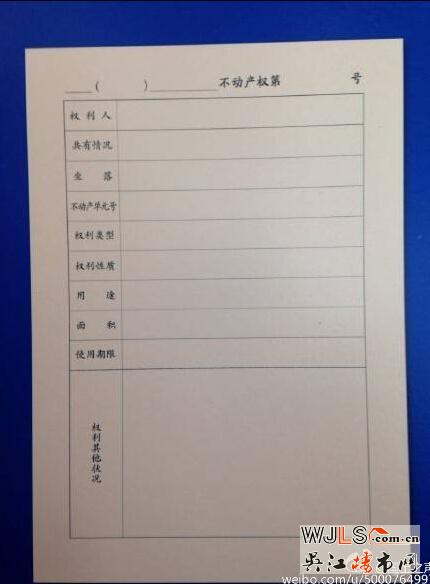 ____( )________不动产权第 号
权利人
共有情况
坐落
不动产单元号
权利类型
权利性质
用途
面积
使用期限
权利其他状况
WJLS.com.cn
吴江楼市网
weibo.com/u/500076499